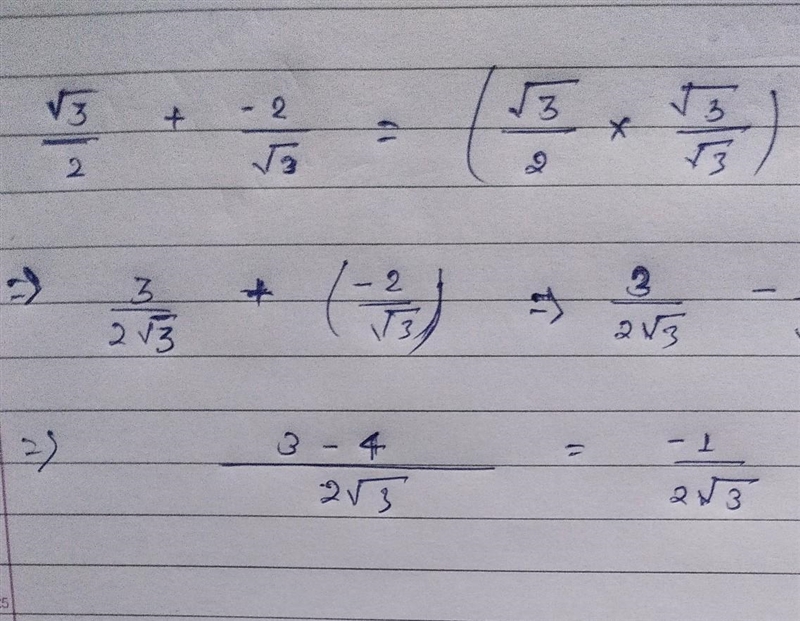 √3/2 + -2/√3 = (√3/2 × √3/√3)
⇒ 3/2√3 + (-2/√3) ⇒ 3/2√3 -
⇒ 3 - 4/2√3 = -1/2√3